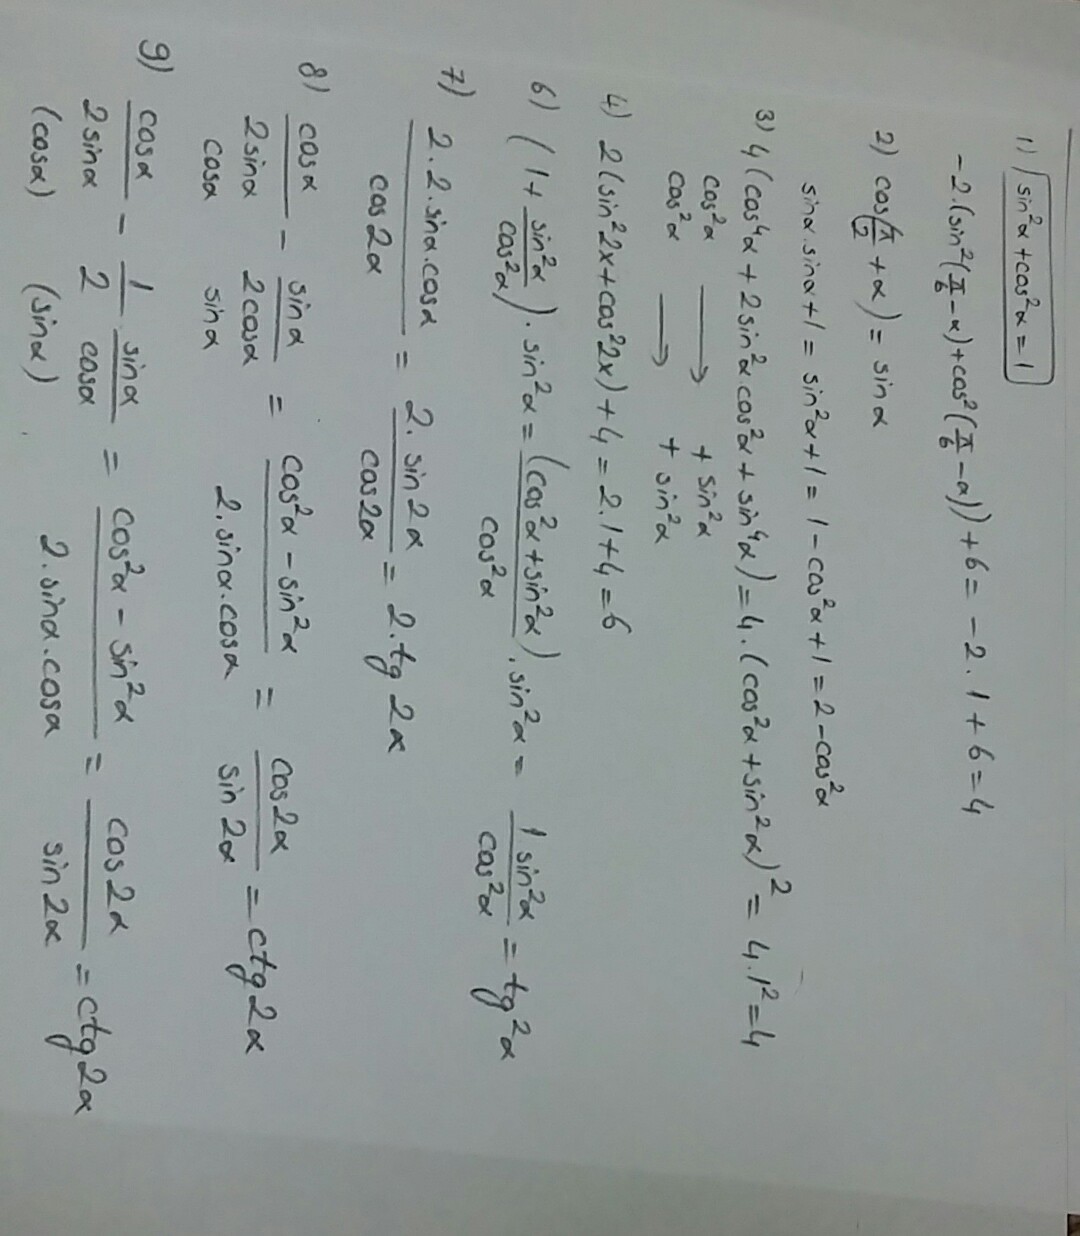 1) sin²α+cos²α=1
-2.(sin²(π/6-α)+cos²(π/6-α))+6=-2.1+6=4
2) cos(π/2+α)=sinα
sinα.sinα+1=sin²α+1=1-cos²α+1=2-cos²α
3) 4(cos⁴α+2sin²α.cos²α+sin⁴α)=4.(cos²α+sin²α)²=4.1²=4
cos²α → +sin²α
cos²α → +sin²α
4) 2(sin²2x+cos²2x)+4=2.1+4=6
6) (1+sin²α/cos²α).sin²α=(cos²α+sin²α)/cos²α.sin²α=1 sin²α/cos²α=tg²α
7) 2.2.sinα.cosα/cos2α=2.sin2α/cos2α=2.tg2α
8) cosα/2sinα-sinα/2cosα=cos²α-sin²α/2.sinα.cosα=cos2α/sin2α=ctg2α
cosα sinα
9) cosα/2sinα-1/2 sinα/cosα=cos²α-sin²α/2.sinα.cosα=cos2α/sin2α=ctg2α
(cosα) (sinα)